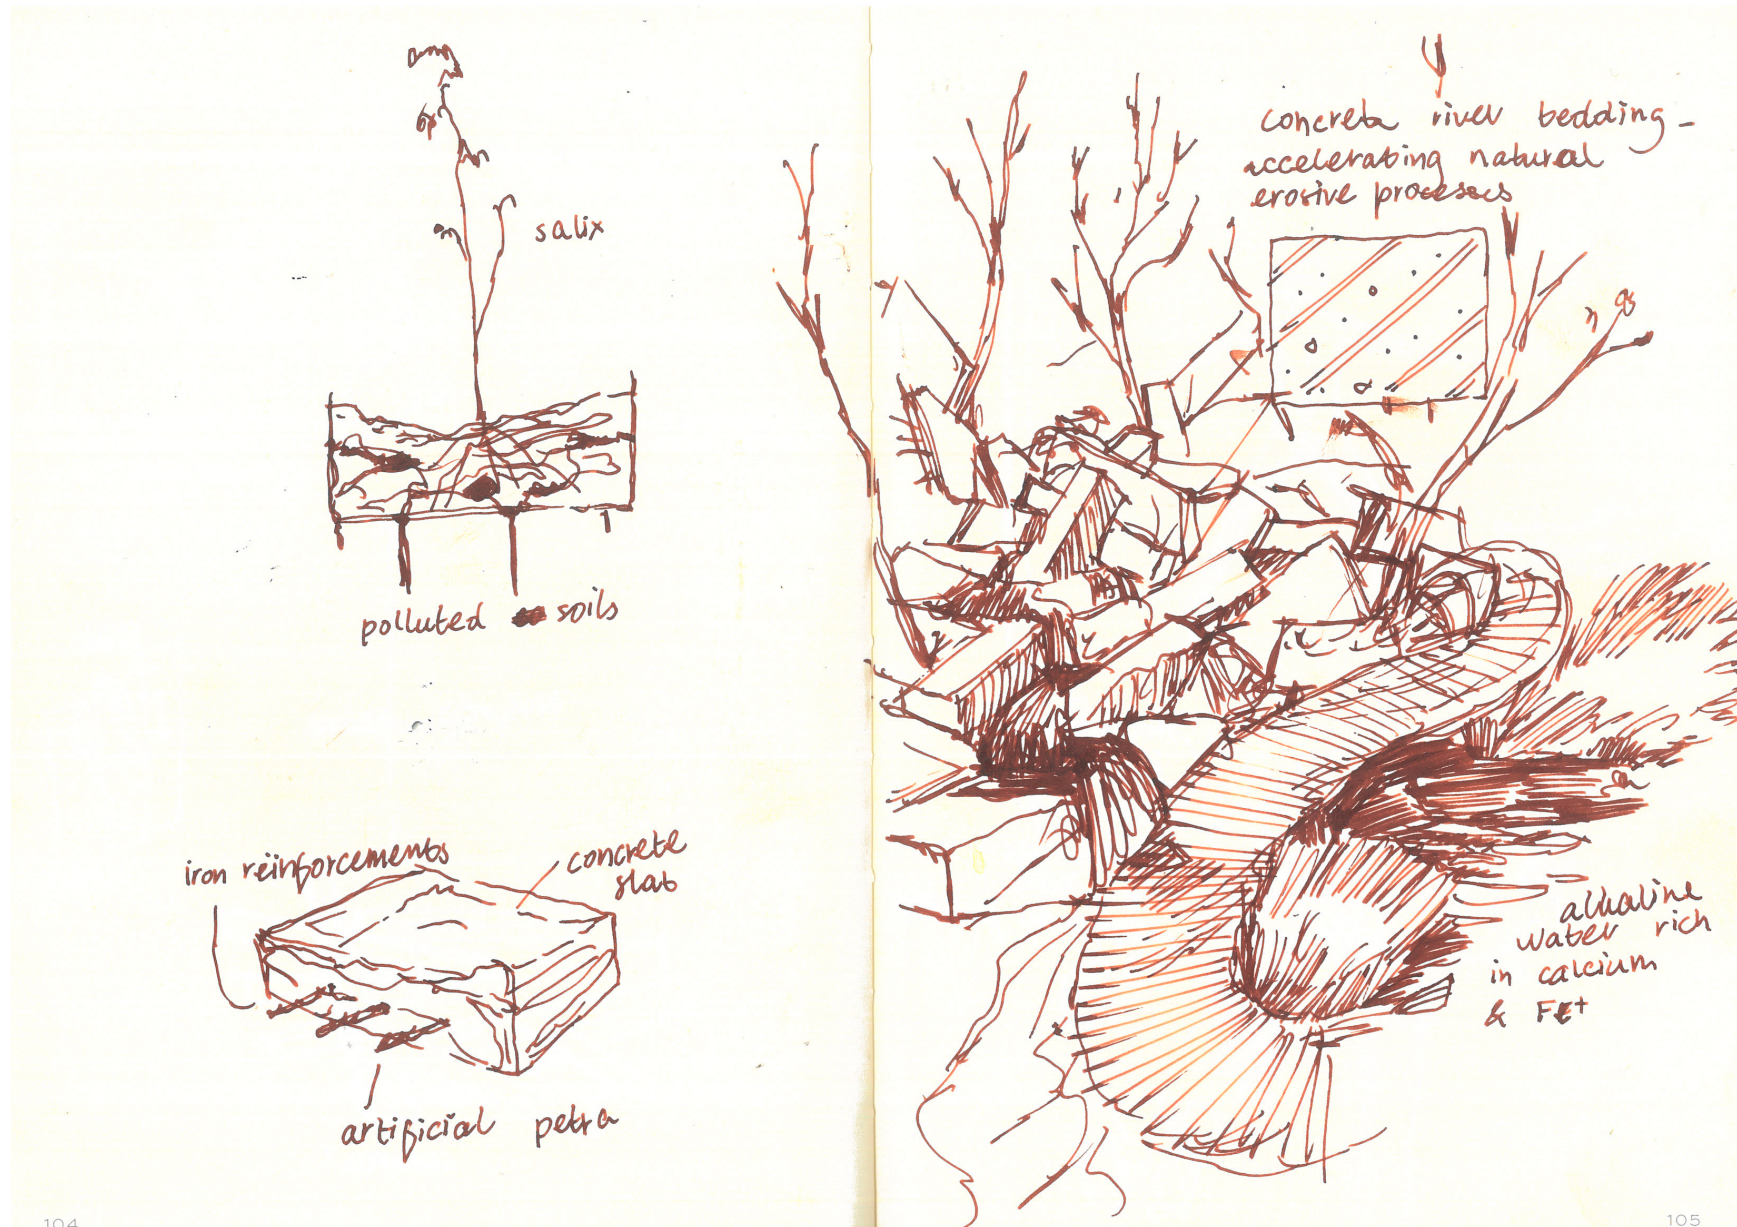 salix
polluted soils
iron reinforcements
concrete
slab
artificial petra
104
concrete river bedding -
accelerating natural
erosive processes
alkaline
water rich
in calcium
& Fe+
105